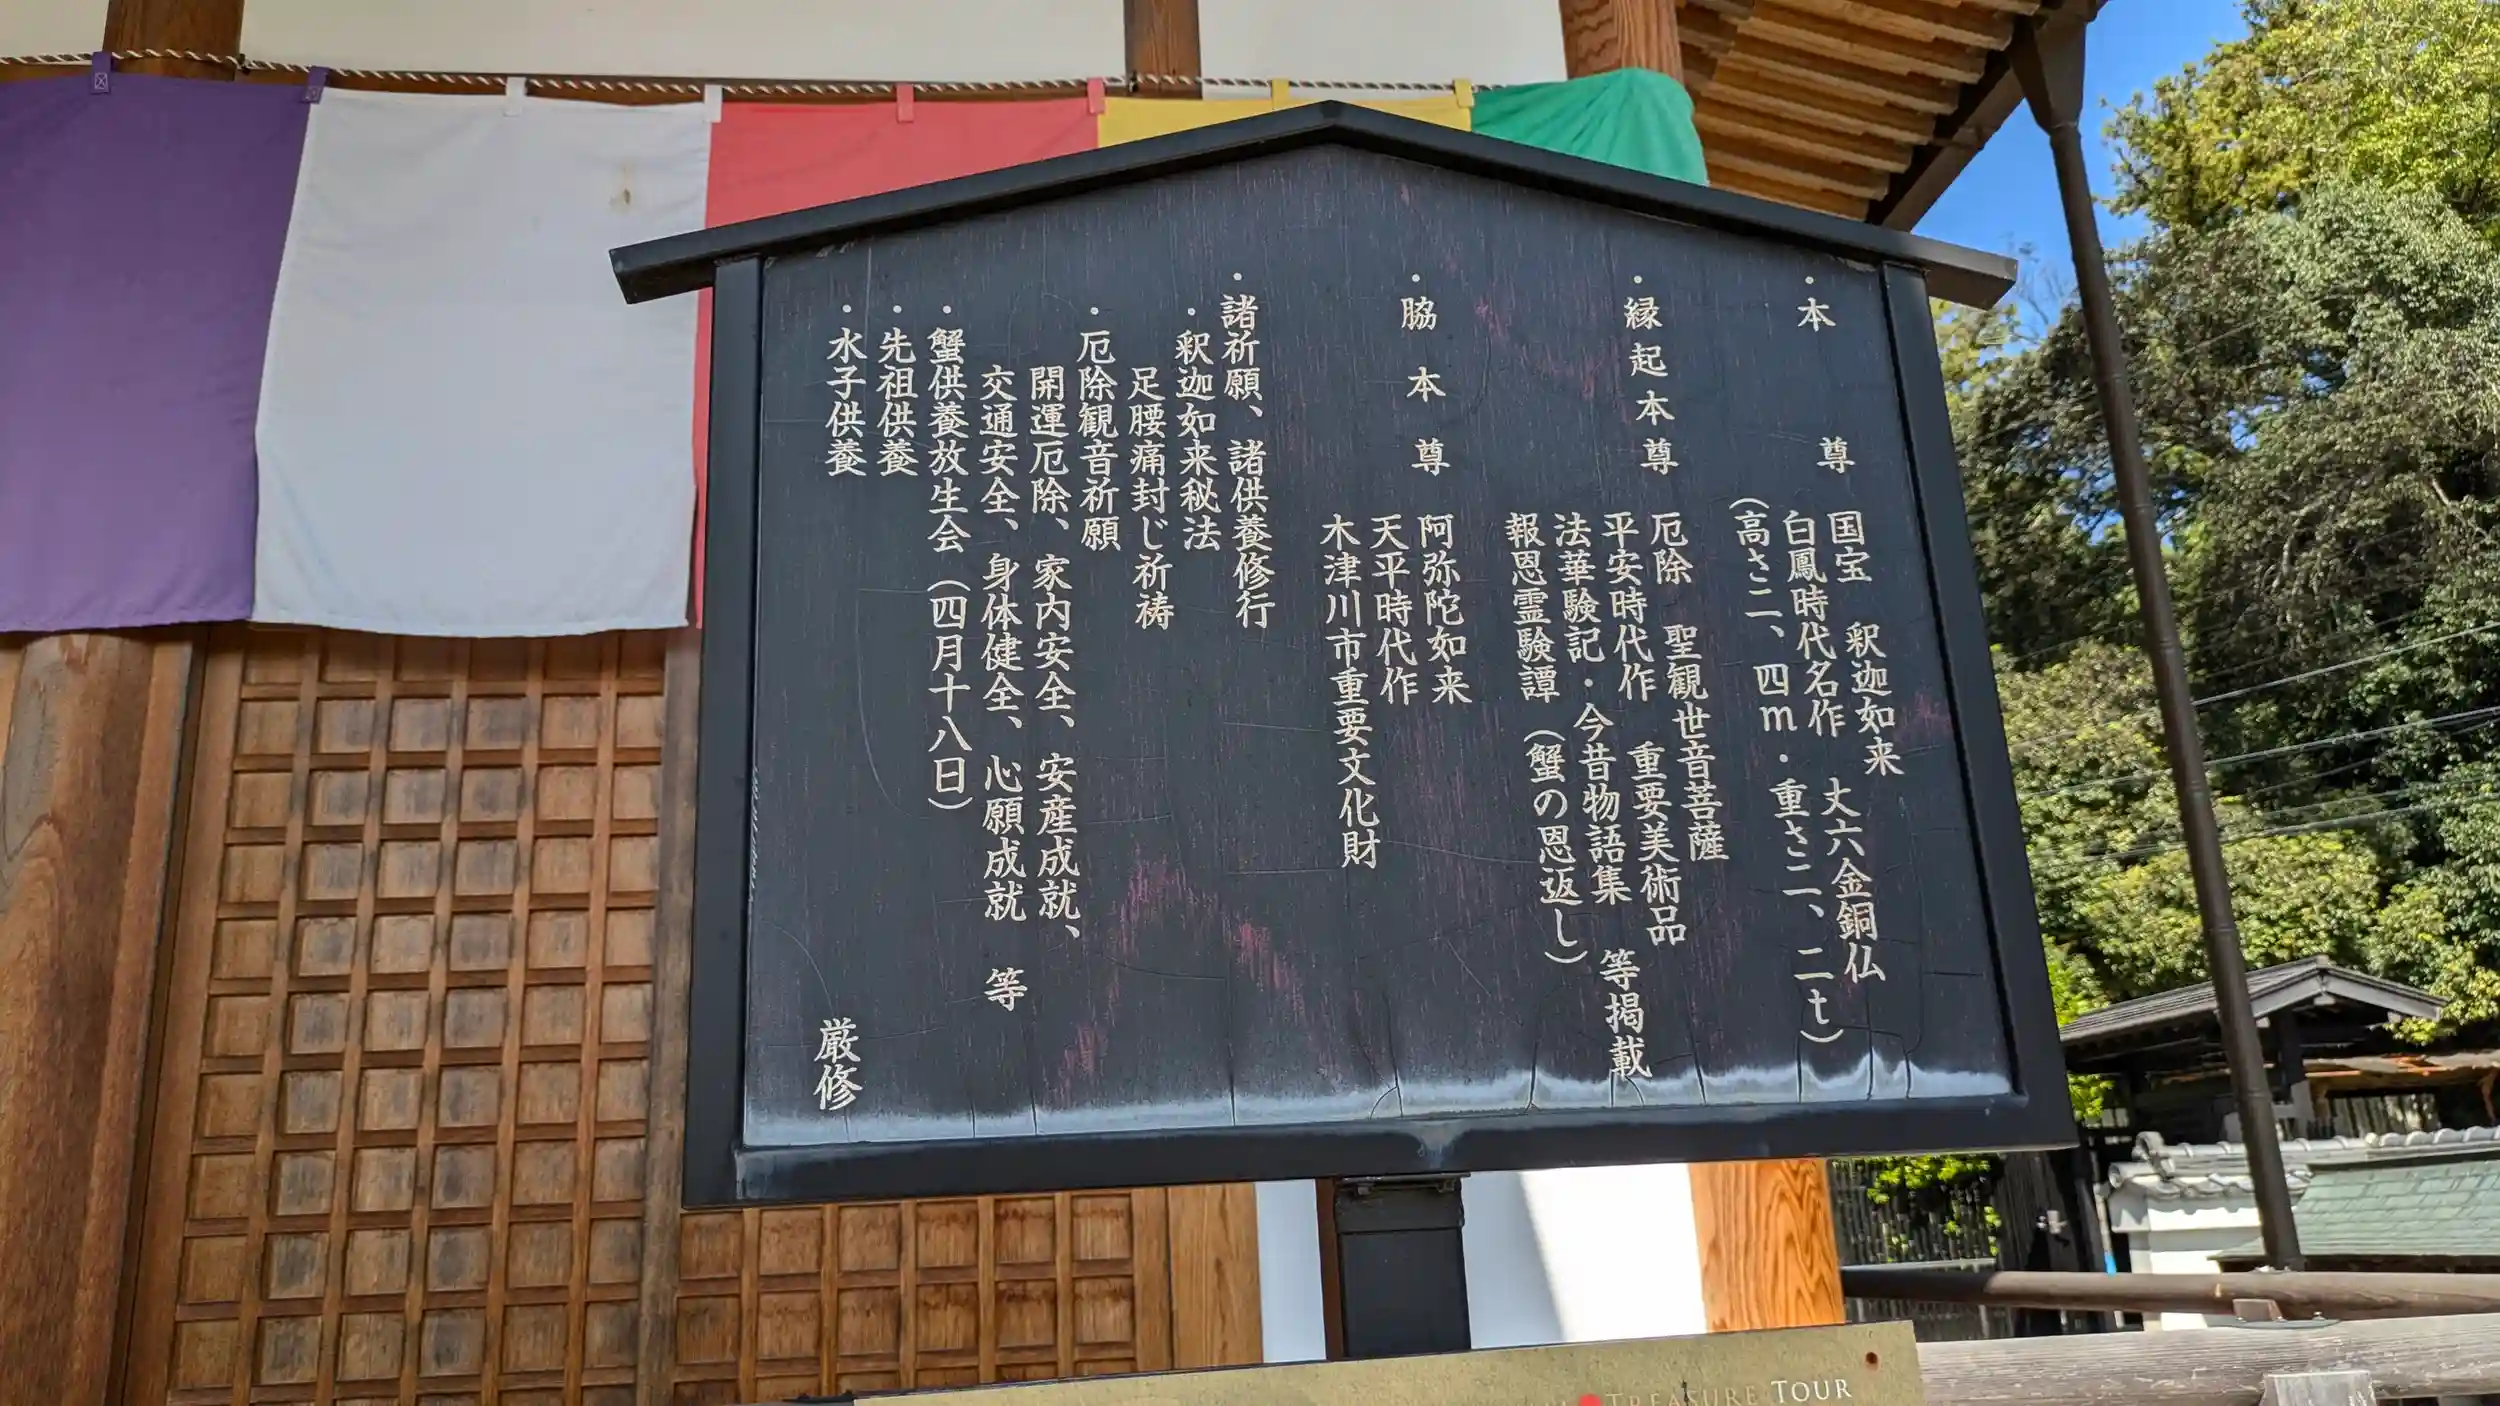 ・本尊 国宝 釈迦如来 丈六金銅仏
白鳳時代名作
(高さ二、四m・重さ二、二t)
・縁起本尊 厄除 聖観世音菩薩
平安時代作 重要美術品
法華験記・今昔物語集 等掲載
報恩霊験譚(蟹の恩返し)
・脇本尊 阿弥陀如来
天平時代作
木津川市重要文化財
・諸祈願、諸供養修行
・釈迦如来秘法
足腰痛封じ祈祷
・厄除観音祈願
開運厄除、家内安全、安産成就、
交通安全、身体健全、心願成就 等
・蟹供養放生会(四月十八日)
・先祖供養
・水子供養
厳修
TREASURE TOUR